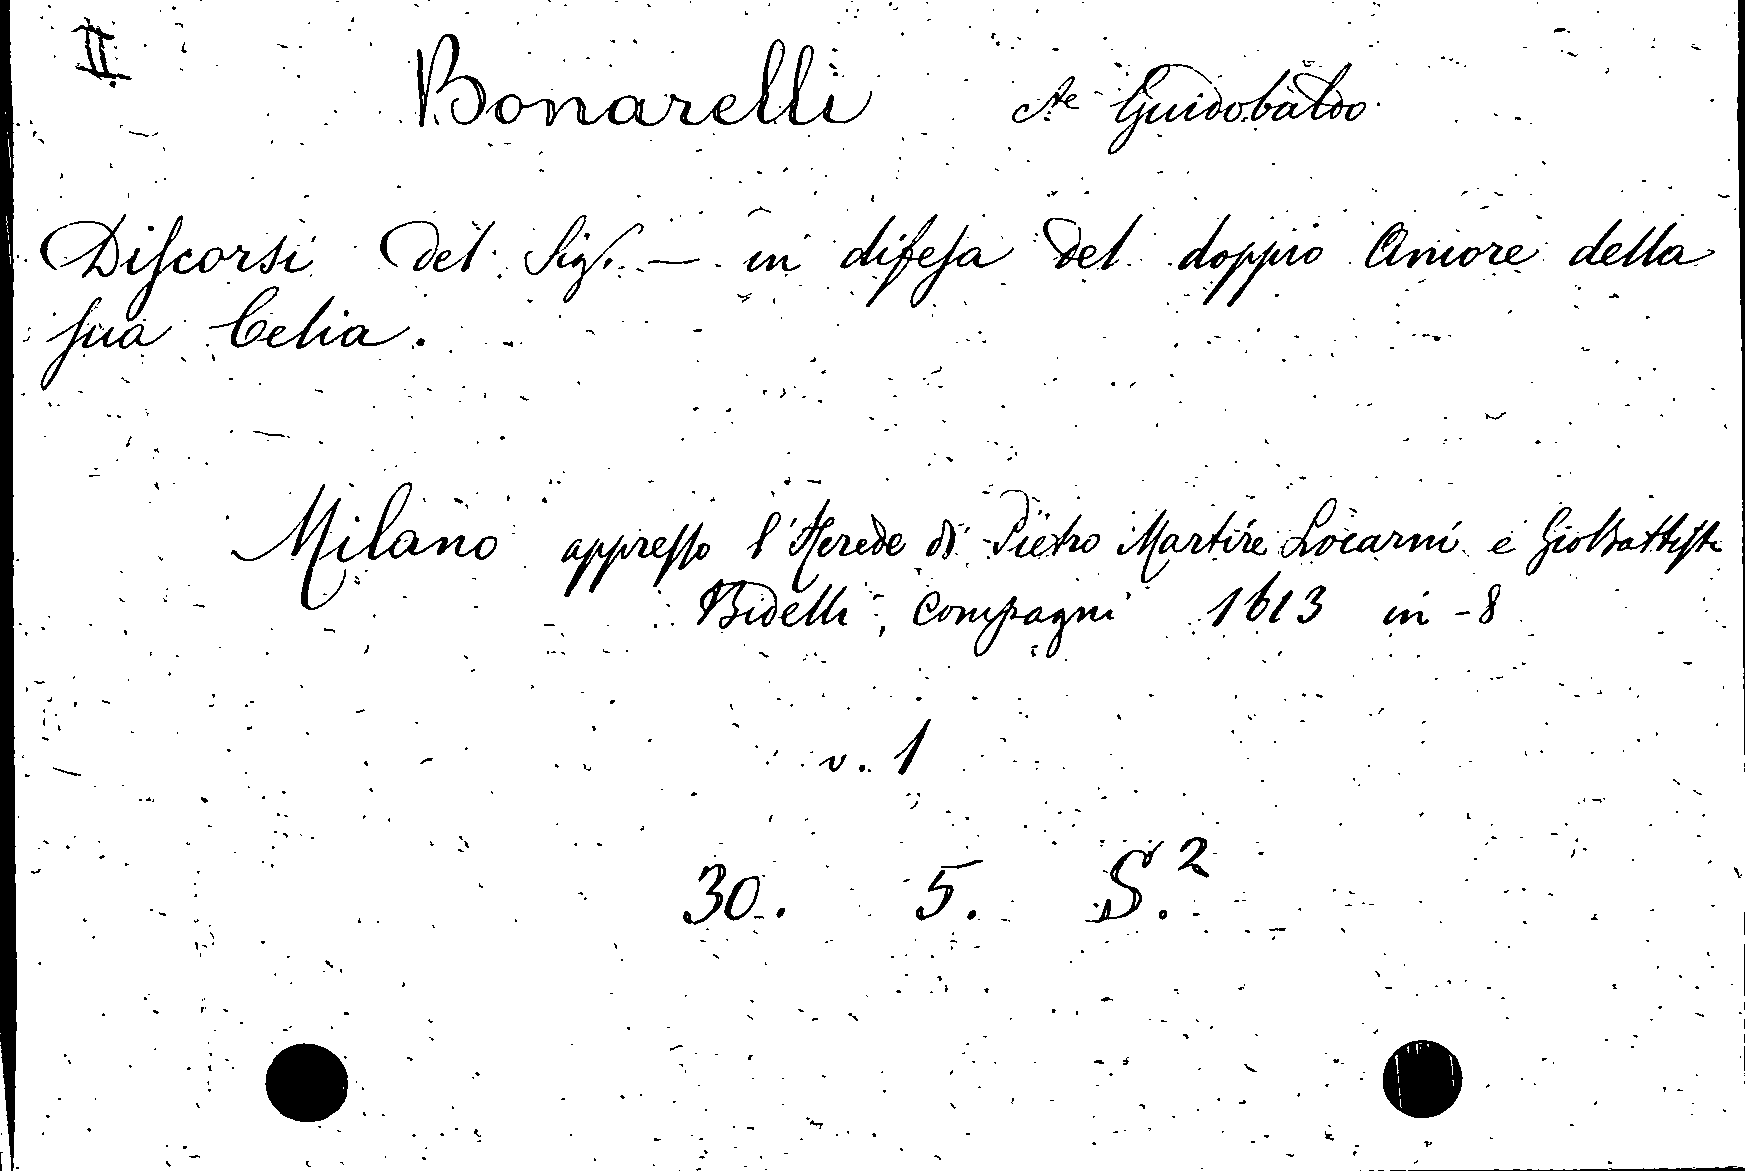 II
Bonarelli cte Guidobaldo
Diſcorsi del Sigr. — in difeſa del doppio Amore della
ſua Celia.
Milano appreſſo l'Herede di Pietro Martire Locarni e Gio Battiſta
Bidelli, Compagni 1613 in-8
v. 1
30. 5. S.²